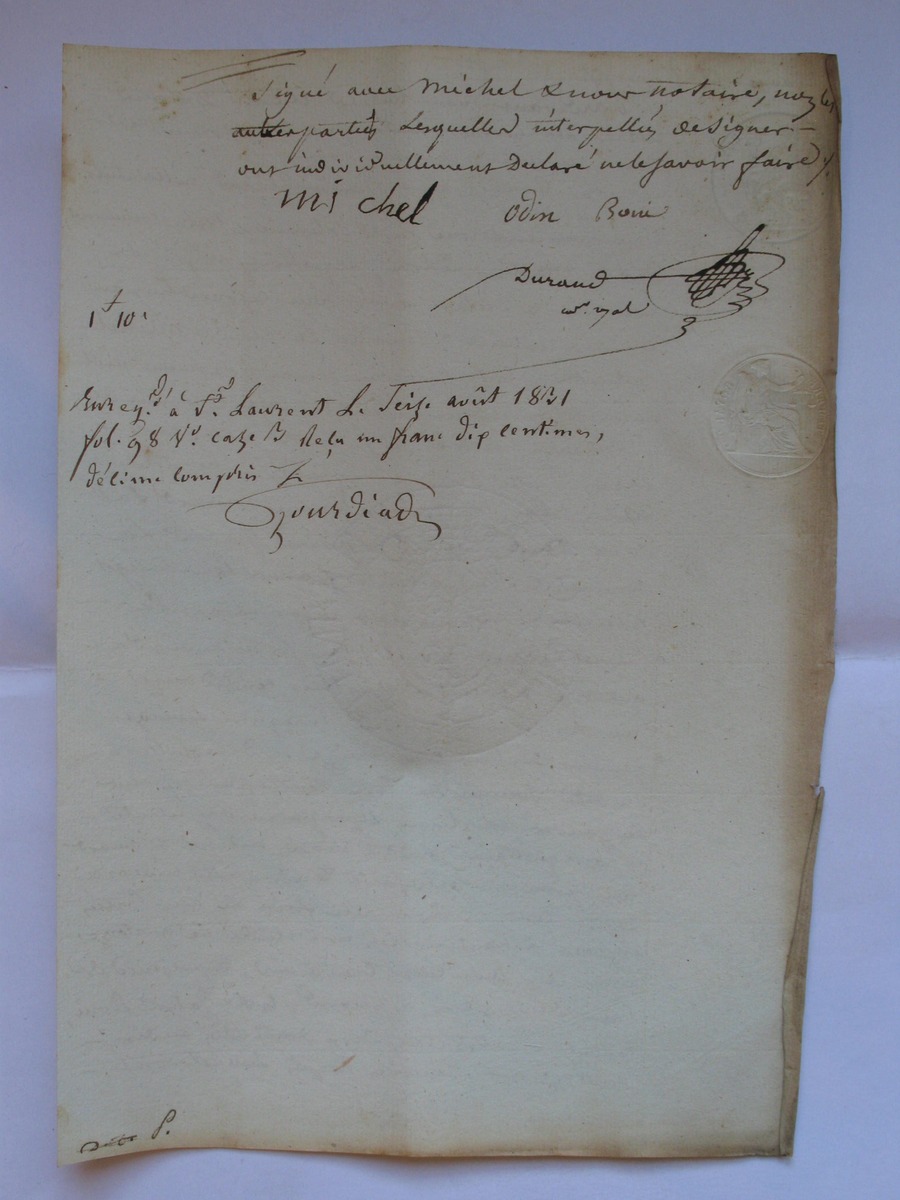 Signé avec Michel & nous notaire, non les
parties Lesquelles interpellés de Signer
ont individuellement Declaré ne le Savoir faire
Michel Odin
Durand
1f 10c
Enregré à St. Laurent Le Seize août 1831
fol. 98 Vo. Caze Reçu un franc dix Centimes,
décime compris